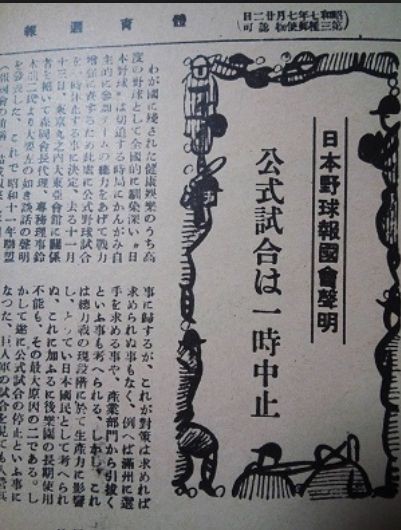 體育週報
昭和七年七月廿二日
第三種郵便物認可
日本野球報國會聲明
公式試合は一時中止
わが國に殘された健康娯樂のうち高
度の野球として全國的に馴染深い『日
本野球』は切迫する時局にかんがみ自
主的に參列チームの總力をあげて戰力
增強に寄するため此處に公式野球試合
を一時休止する事に決定、去る十一月
十三日、東京丸之内大東亞會館に關係
者を招いて會長代理、專務理事鈴
木龍二氏より大要左の如き談話の聲明
を發表した、これで昭和十一年聯盟
事に歸するが、これが對策は求めれば
求められぬ事もなく、例へば滿洲に選
手を求める事や、產業部門から引拔く
といふ事も考へられる、しかし、これ
は總力戰の現段階に於て生產力に影響
し、とつてい日本國民として考へられ
ぬ、これに加ふるに後樂園の長期使用
不能も、その最大原因の二である。し
かして遂に公式試合の停止といふ事に
なつた、巨人軍の試合を見ても入營兵